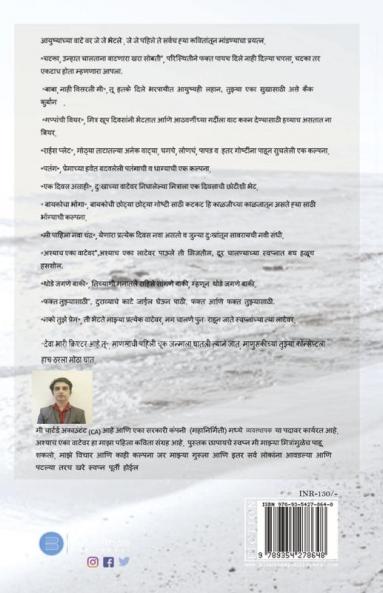 आयुष्याच्या वाटे वर जे जे भेटले , जे जे पहिले ते सर्वच ह्या कवितांतून मांडण्याचा प्रयत्न.
"चटका, उन्हात चालताना वाटणारा खरा सोबती", परिस्थितीने फक्त पायच दिले नाही दिल्या चपला, चटका तर
एकटाच होता म्हणणारा आपला.
"बाबा, नाही विसरली मी", तू इतके दिले भरपाईत आयुष्यही लहान, तुझ्या एका सुखासाठी असे कैक
कुर्बान .
"गप्पांची बियर", मित्र खूप दिवसांनी भेटतात आणि आठवणींच्या गर्दीला वाट करून देण्यासाठी हव्याच असतात ना
बियर.
"राईस प्लेट", गोठ्या ताटातल्या अनेक वाट्या, चमचे, लोणचं, पापड व इतर गोष्टींना पाहून सुचलेली एक कल्पना.
"पतंग", प्रेमाच्या हवेत बदवलेली पतंगाची व धाग्याची एक कल्पना.
"एक दिवस असाही", दुःखाच्या वाटेवर निघालेल्या मित्राला एक दिवसाची छोटीशी भेट.
" बायकोचा भोंगा", बायकोची छोट्या छोट्या गोष्टी साठी कटकट हि काळजीच्या काळजातून असते ह्या साठी
भोंग्याची कल्पना.
"मी पाहिला नवा चंद्र", येणारा प्रत्येक दिवस नवा असतो व जुन्या दुःखांतून सावरायची नवी संधी.
"अश्याच एका वाटेवर",अश्याच एका लाटेवर पाऊले ती भिजतील, दूर चालण्याच्या स्वप्नात बघ हळूच
हसशील.
"थोडे जगणे बाकी", तिच्याशी मनातले राहिले सांगणे बाकी, म्हणून थोडे जगणे बाकी.
"फक्त तुझ्यासाठी", दुराव्याचे काटे जाईल घेऊन पाठी, फक्त आणि फक्त तुझ्यासाठी.
"नको तुझे प्रेम", ती भेटते माझ्या प्रत्येक वाटेवर, मग चालणे पुनः राहून जाते स्वप्नांच्या त्या लाटेवर.
"देवा भारी क्रिएटर आहे तू", माणसाची पहिली चूक जन्माला घातली त्याने जात, माणुसकीच्या तुझ्या कॉन्सेप्टला
हाच ठरला मोठा घात.
मी चार्टर्ड अकाउंटंट (CA) आहे आणि एका सरकारी कंपनी (महानिर्मिती) मध्ये व्यवस्थापक या पदावर कार्यरत आहे.
अश्याच एका वाटेवर हा माझा पहिला कविता संग्रह आहे. पुस्तक छापायचे स्वप्न मी माझ्या मित्रांमुळेच पाहू
शकलो, माझे विचार आणि काही कल्पना जर माझ्या गुरूला आणि इतर सर्व लोकांना आवडल्या आणि
पटल्या तरच खरे स्वप्न पूर्ती होईल
INR-150/-
ISBN 978-93-5427-864-8
9 789354 278648